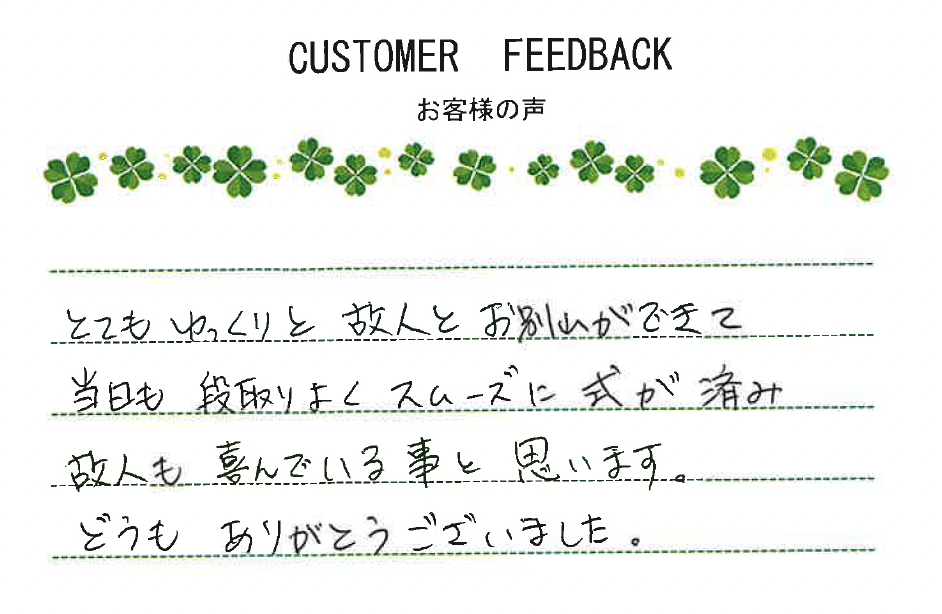 CUSTOMER FEEDBACK
お客様の声
とてもゆっくりと 故人と お別れができて
当日も 段取りよく スムーズに 式が 済み
故人も 喜んでいる事と 思います。
どうも ありがとうございました。